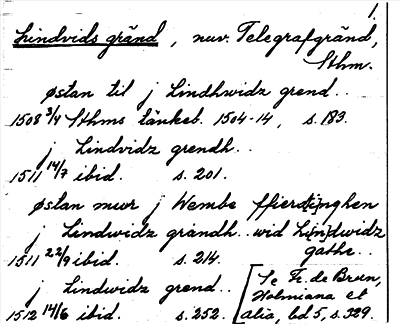 1.
Lindvids gränd, nuv. Telegrafgränd,
Sthm.
østan til j Lindhwidz grend..
1508 3/4 Sthms tänkeb. 1504-14, s. 183.
j Lindvidz grendh..
1511 14/7 ibid. s. 201.
østan mwr j Wembe ffierd[i]nghen
j Lindwidz grandh.. wid Li[n]dwidz
gathe..
1511 22/9 ibid. s. 214.
j Lindwidz grend..
1512 14/6 ibid. s. 252.
[Se Fr. de Brun,
Holmiana et
alia, bd 5, s. 329.